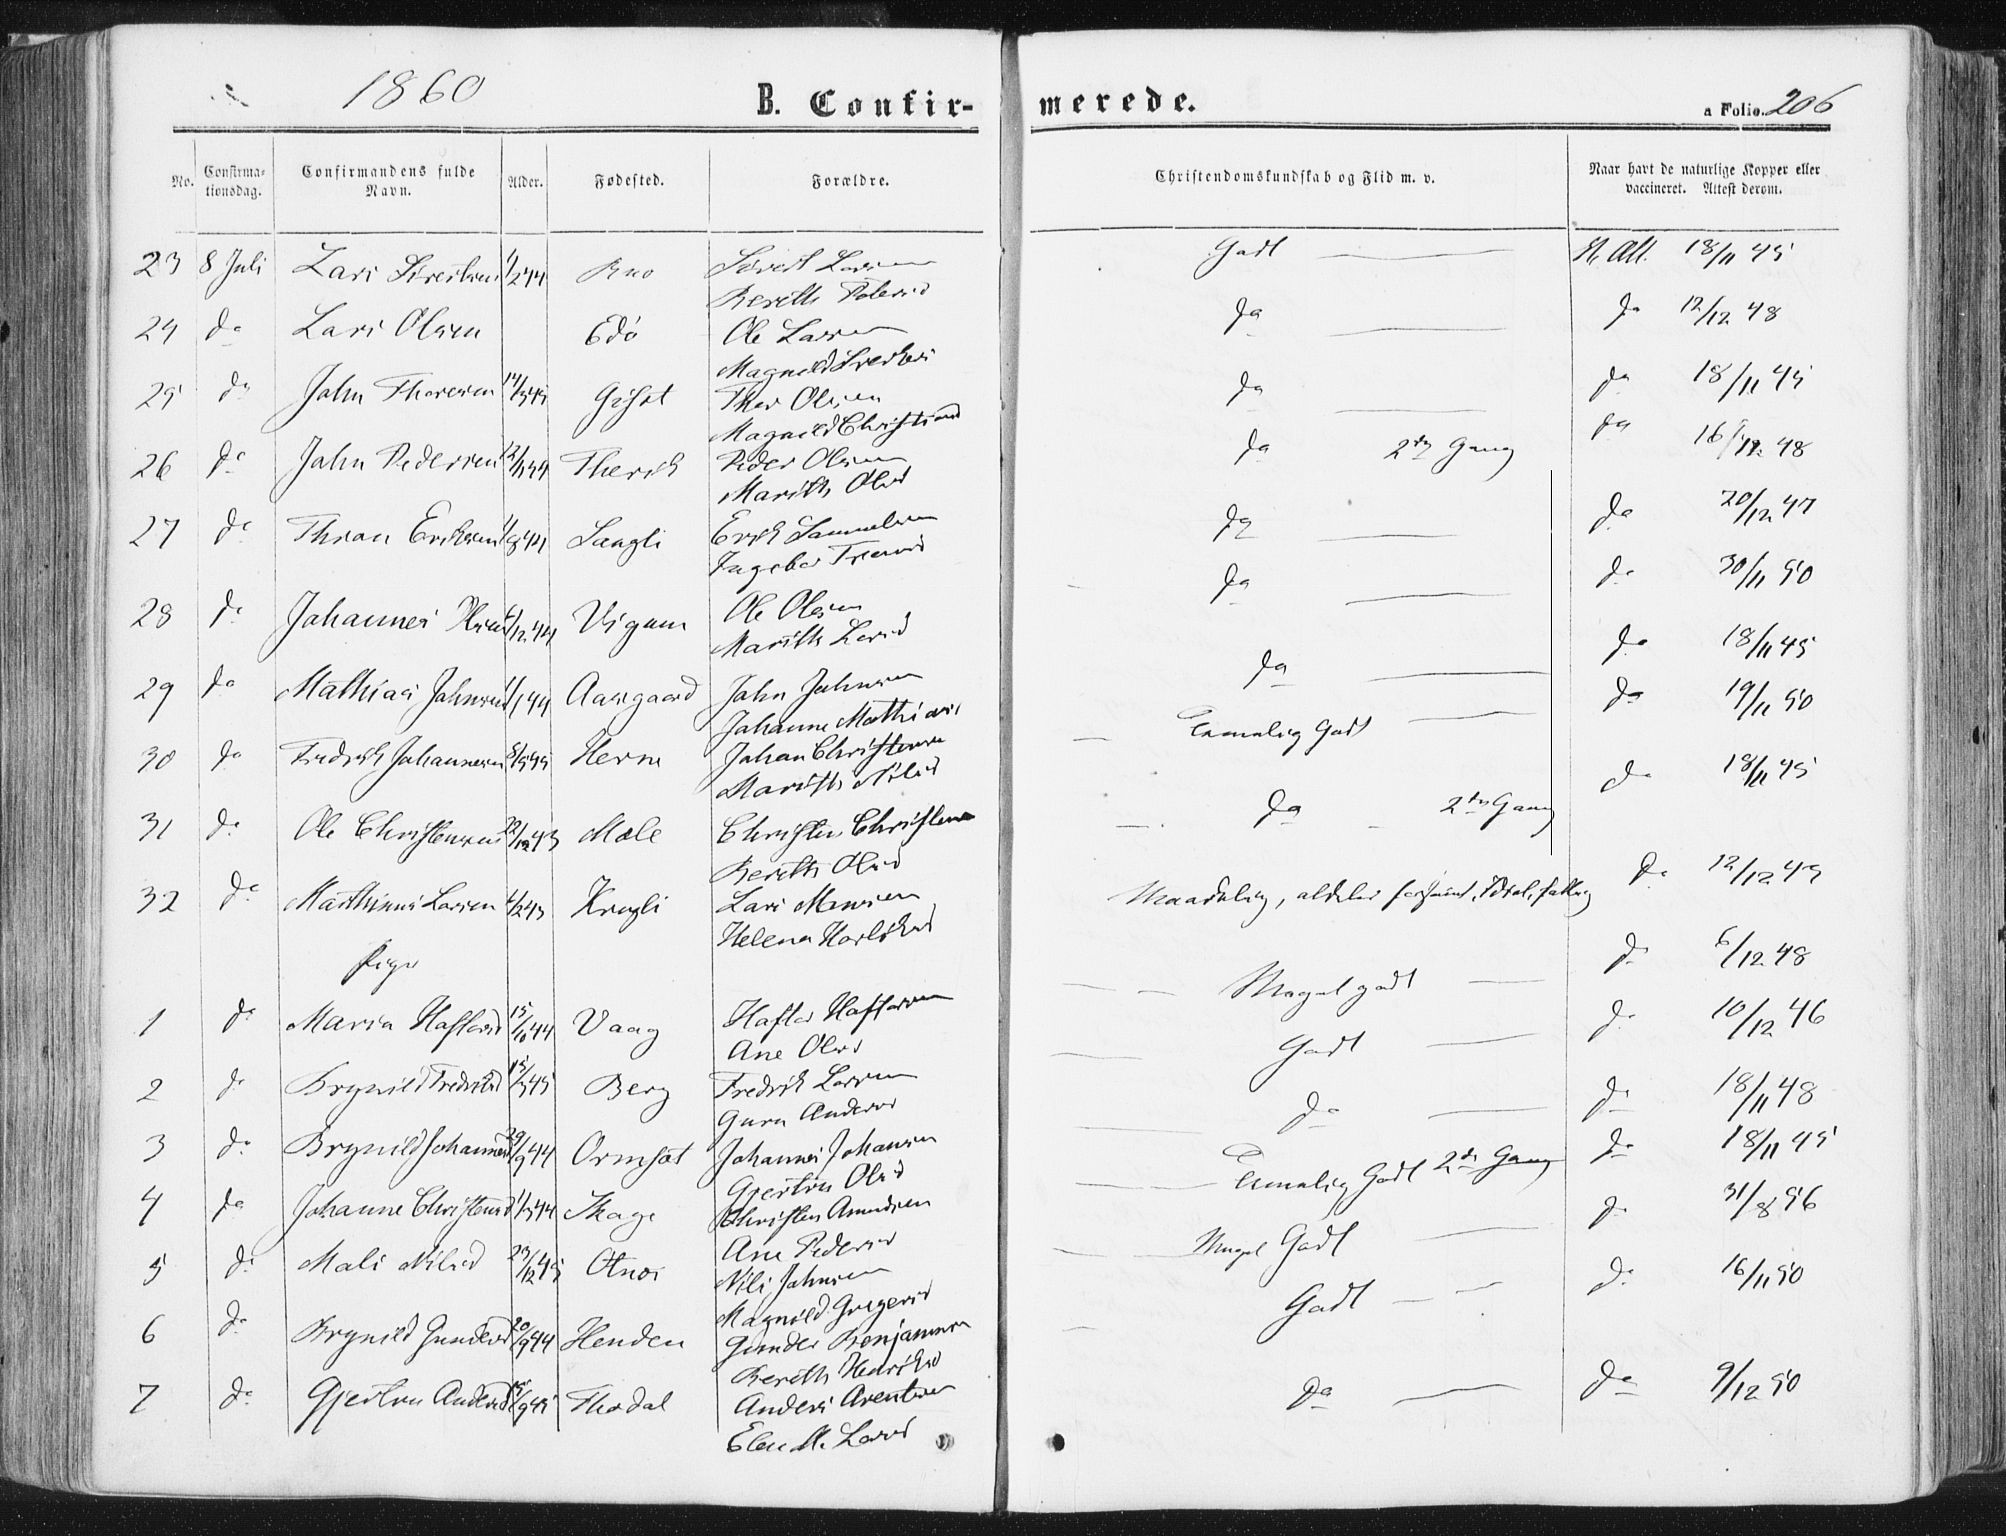 1860
B. Confir-
merede.
a Folio. 206
No.
Confirma-
tionsdag.
Confirmandens fulde
Navn.
Alder.
Fødested.
Forældre.
Christendomskundskab og Flid m. v.
Naar havt de naturlige Kopper eller
vaccineret. Attest derom.
23 8 Juli Lars Sivertsen 1/2 44 Sivert Larsen Godt 18/11 45
Bereth
24 do Lars Olsen Edø Ole Larsen do do 12/12 48
Magnild
25 do John Thoresen 14/3 45 Thor Olsen do do 18/11 45
Magnild Christiansd
26 do John Pedersen Peder Olsen do 2den Gang do 48
Marith Olsd
27 do Eriksen 44 Langli Erik Samuelsen do do 20/12 47
Ingebor
28 do Johannes Olsen /12 44 Vigum Ole Olsen do do 30/11 50
Marith Larsd
29 do Mathias Johnsen 44 Aasgaard John Johnsen do do 18/11 45
Johanne Mathiasd
30 do Fredrik Johannesen 8/5 45 Herne Johan Christensen Temmelig Godt do 19/11 50
Marith Nilsd
31 do Ole Christensen 22/12 43 Mæle Christen Christensen do 2den Gang do 18/11 45
Bereth Olsd
32 do Mathinus Larsen 4/2 43 Krogli Lars Monsen Maadelig, aldeles forsømt, do 12/12 43
Helena
Piger
1 do Maria Haftorsd 15/10 44 Vaag Haftor Haftorsen Meget godt do 6/12 48
Ane Olsd
2 do Brynild Fredriksd 15/3 45 Berg Fredrik Larsen Godt do 10/12 46
Guru Andersd
3 do Brynild Johannesd 29/9 44 Ormsæt Johannes Johansen do do 18/11 48
Gjertru Olsd
4 do Johanne Christensd 1/3 44 Skage Christen Amundsen Temmelig Godt 2den Gang do 18/11 45
Ane Pedersd
5 do Mali Nilsd 23/12 45 Otnes Nils Johnsen Meget Godt do 31/8 56
Magnild Gregersd
6 do Brynild Gundersd 20/9 44 Henden Gunder Benjaminsen Godt do 16/11 50
Bereth Henriksd
7 do Gjertru Andersd /9 45 Thodal Anders Arentsen do do 9/12 50
Elen M. Larsd